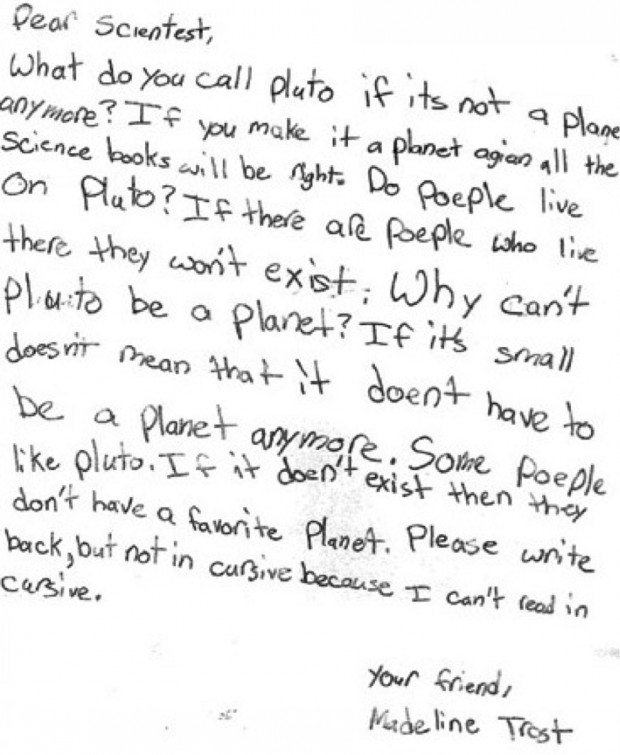 Dear Scientest,
What do you call pluto if its not a plane
anymore? If you make it a planet agian all the
Science books will be right. Do Poeple live
On Pluto? If there are Poeple who live
there they won't exist. Why can't
Pluto be a Planet? If it's small
doesn't mean that it doent have to
be a Planet anymore. Some Poeple
like pluto. If it doen't exist then they
don't have a favorite Planet. Please write
back, but not in cursive because I can't read in
cursive.
Your friend,
Madeline Trost